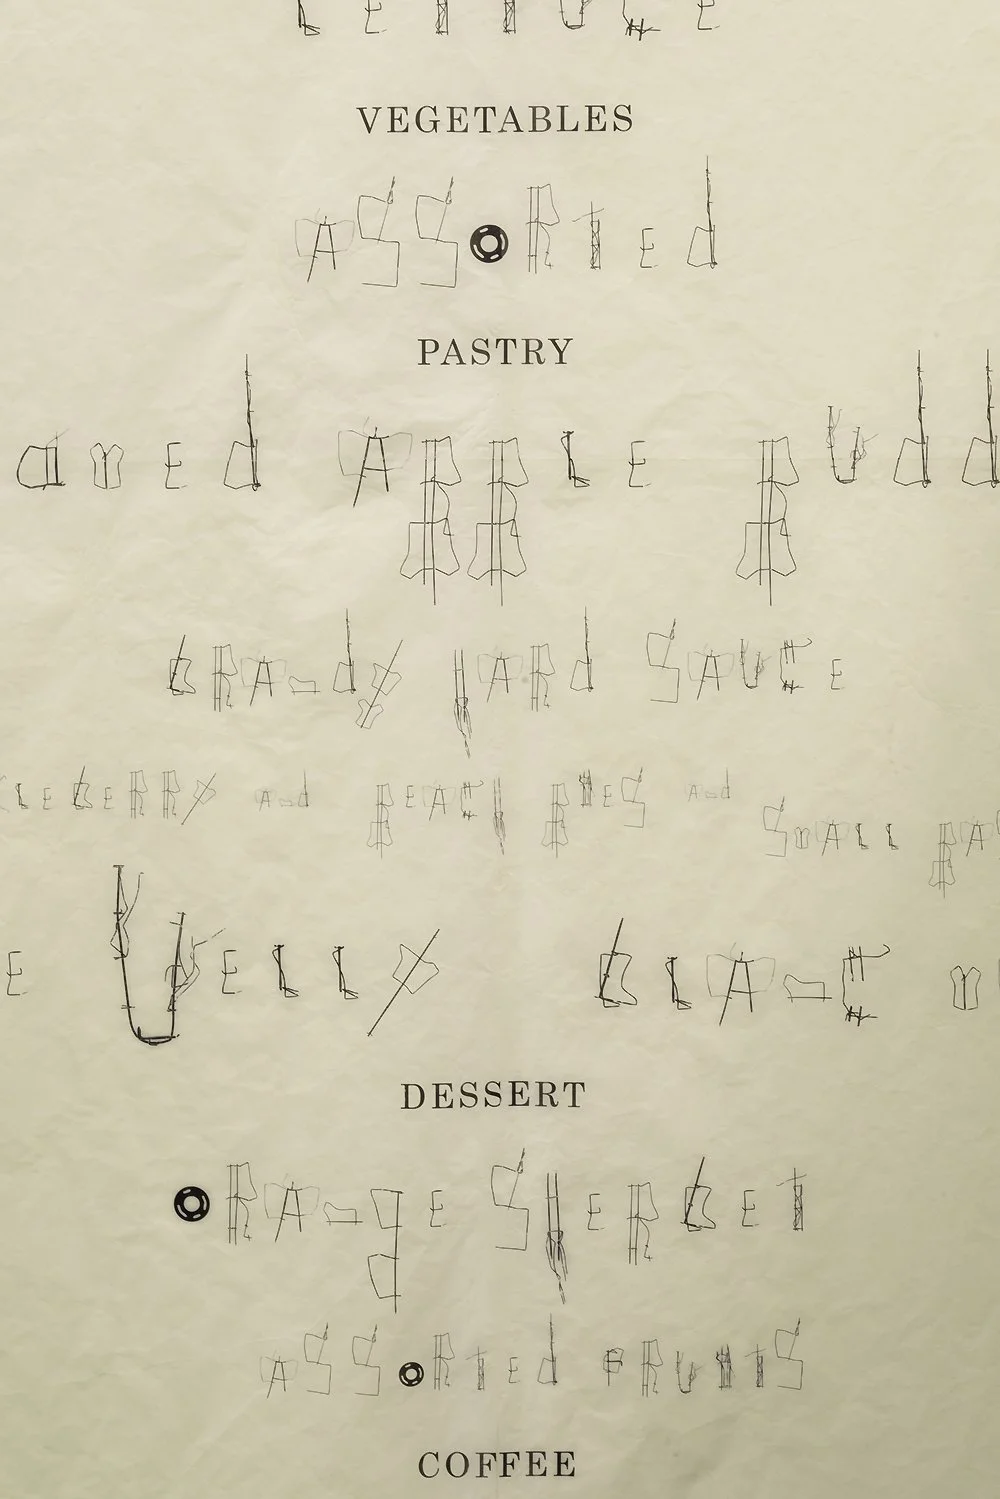 LETTUCE
VEGETABLES
ASSORTEd
PASTRY
amEd APPLE PUdd
BRAndY HARd SAUCE
LEBERRY And PEACH PIES And SmALL PA
E JELLY BLAnC m
DESSERT
ORAngE SHERBET
ASSORTEd FRUITS
COFFEE